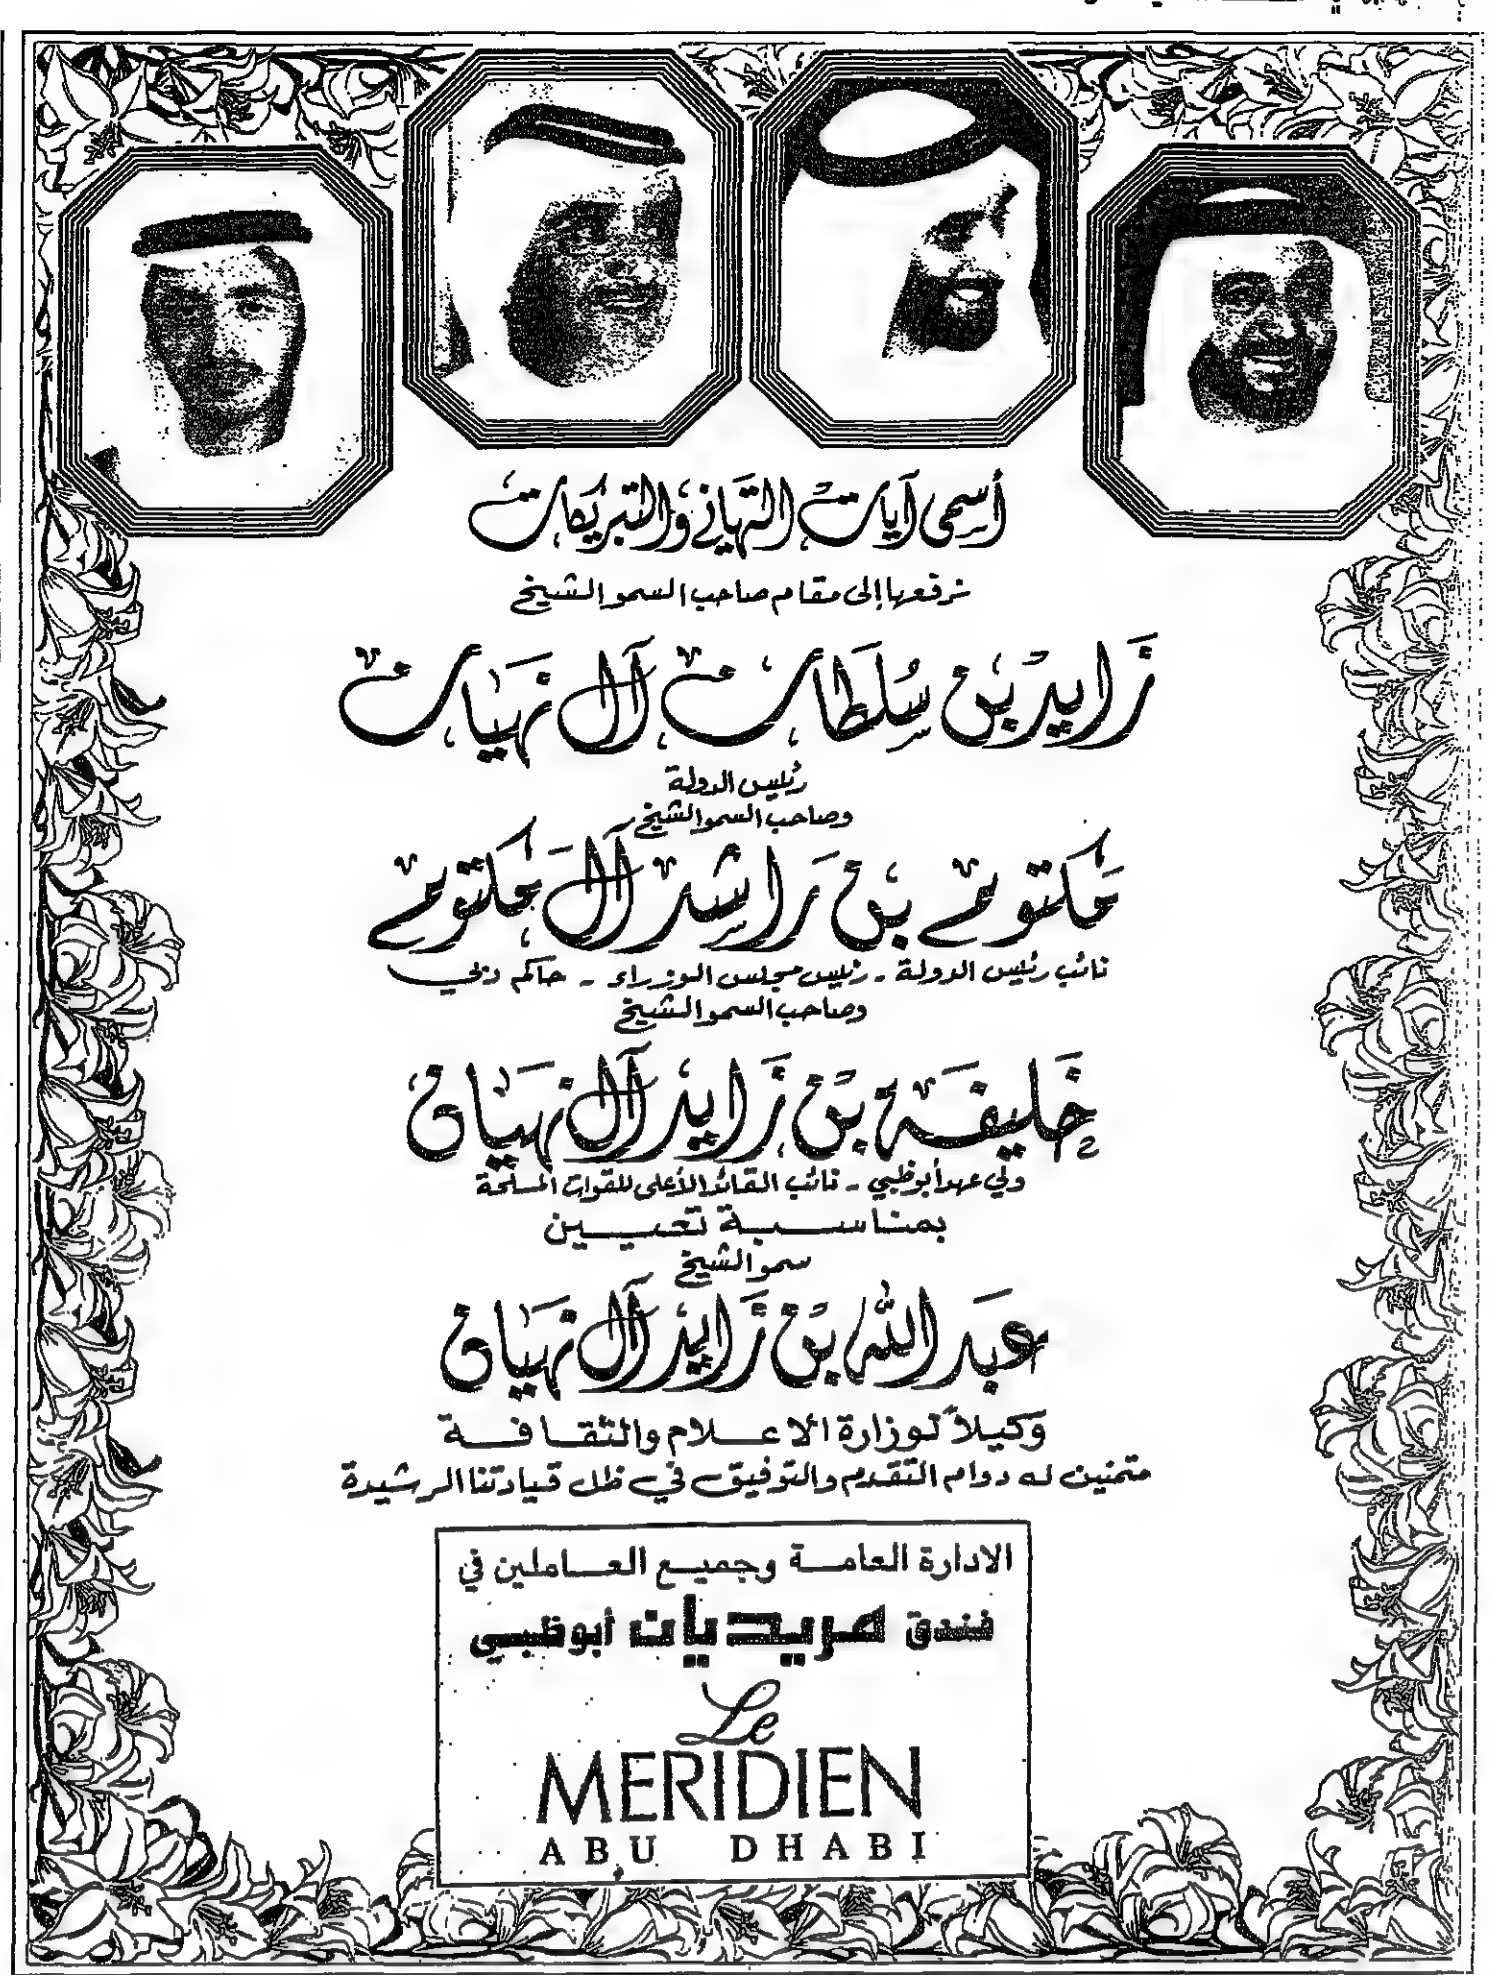 أسمى آيات التهاني والتبريكات
نرفعها إلى مقام صاحب السمو الشيخ
زايد بن سلطان آل نهيان
رئيس الدولة
وصاحب السمو الشيخ
مكتوم بن راشد آل مكتوم
نائب رئيس الدولة - رئيس مجلس الوزراء - حاكم دبي
وصاحب السمو الشيخ
خليفة بن زايد آل نهيان
ولي عهد أبوظبي - نائب القائد الأعلى للقوات المسلحة
بمناسبة تعيين
سمو الشيخ
عبد الله بن زايد آل نهيان
وكيلاً لوزارة الاعلام والثقافة
متمنين له دوام التقدم والتوفيق في ظل قيادتنا الرشيدة
الادارة العامة وجميع العاملين في
فندق مريديان أبوظبي
Le
MERIDIEN
ABU DHABI